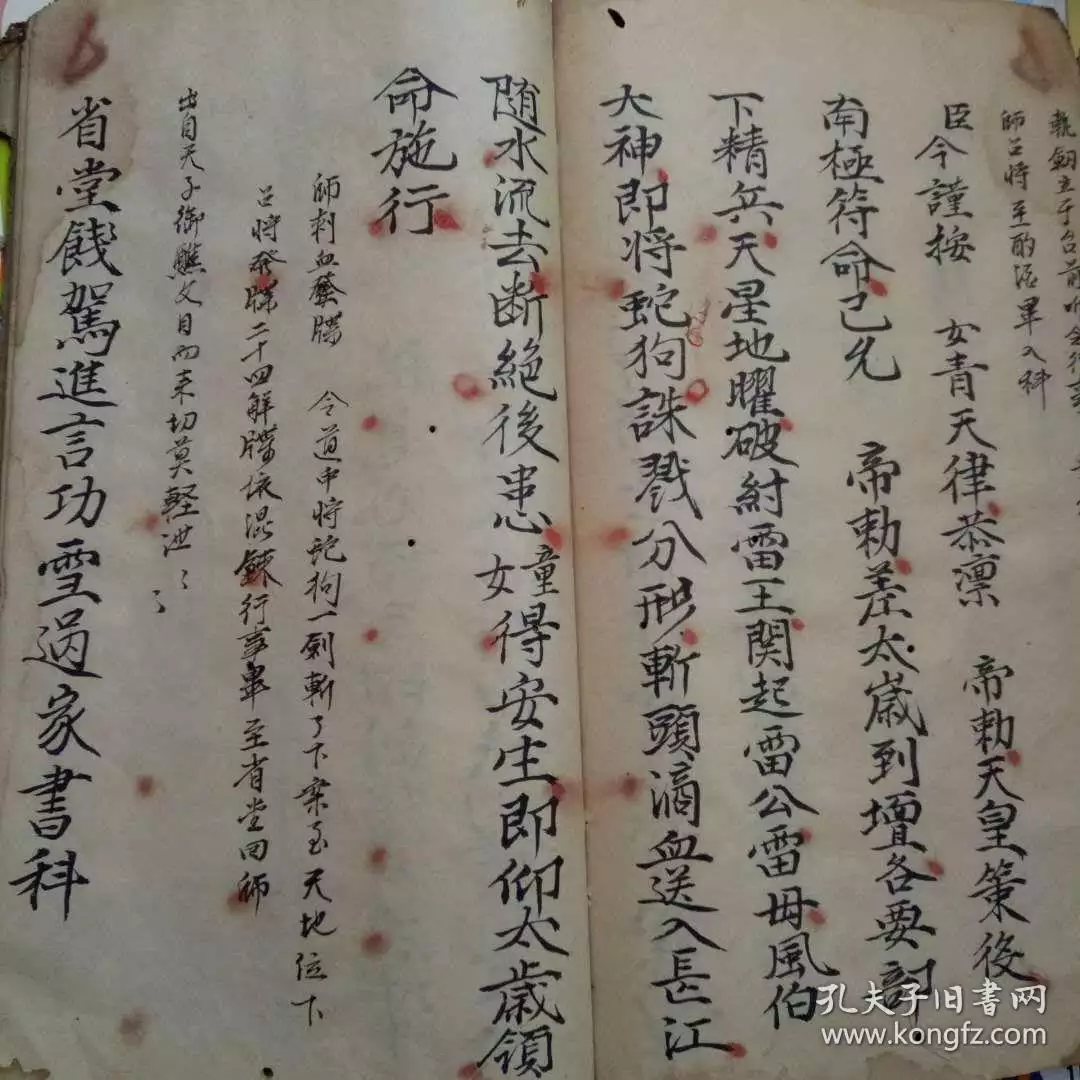 執劍立于台前
師召將至酌酒畢入科
臣今謹按 女青天律恭凛 帝勅天皇策後
南極符命已允 帝勅差太歲到壇各要討
下精兵天星地曜破紂雷王関起雷公雷母風伯
大神即将蛇狗誅戮分形斬頭滴血送入長江
随水流去断絶後患童女得安生即仰太歲領
命施行
師刺血 令道中将蛇狗一劍斬了下案至天地位下
召将發牒二十四解牒依混錬行事畢至省堂回師
出自天子御醮文目而来切莫輕泄〻
省堂餞駕進言功雪過家書科
孔夫子旧书网
www.kongfz.com